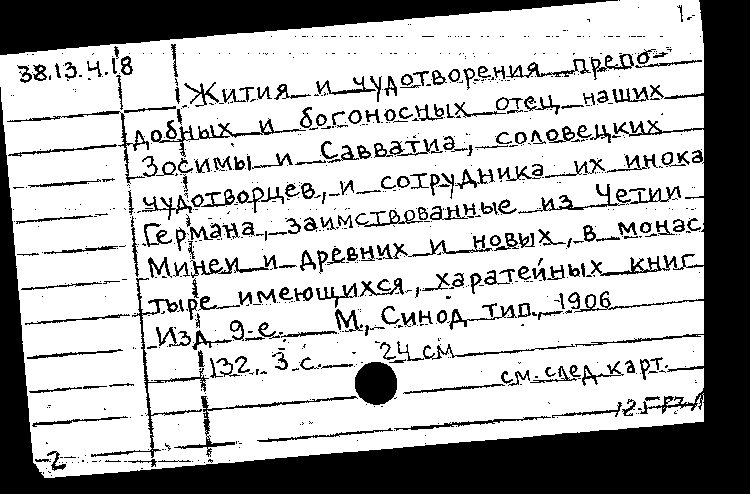 1.
38.13.4.18
Жития и чудотворения препо-
добных и богоносных отец наших
Зосимы и Савватиа, соловецких
чудотворцев, и сотрудника их инока
Германа, заимствованные из Четии
Минеи и древних и новых, в монас
тыре имеющихся, харатейных книг
Изд. 9-е. М., Синод. тип., 1906
132, 3 с. 24 см
см. след. карт.
2